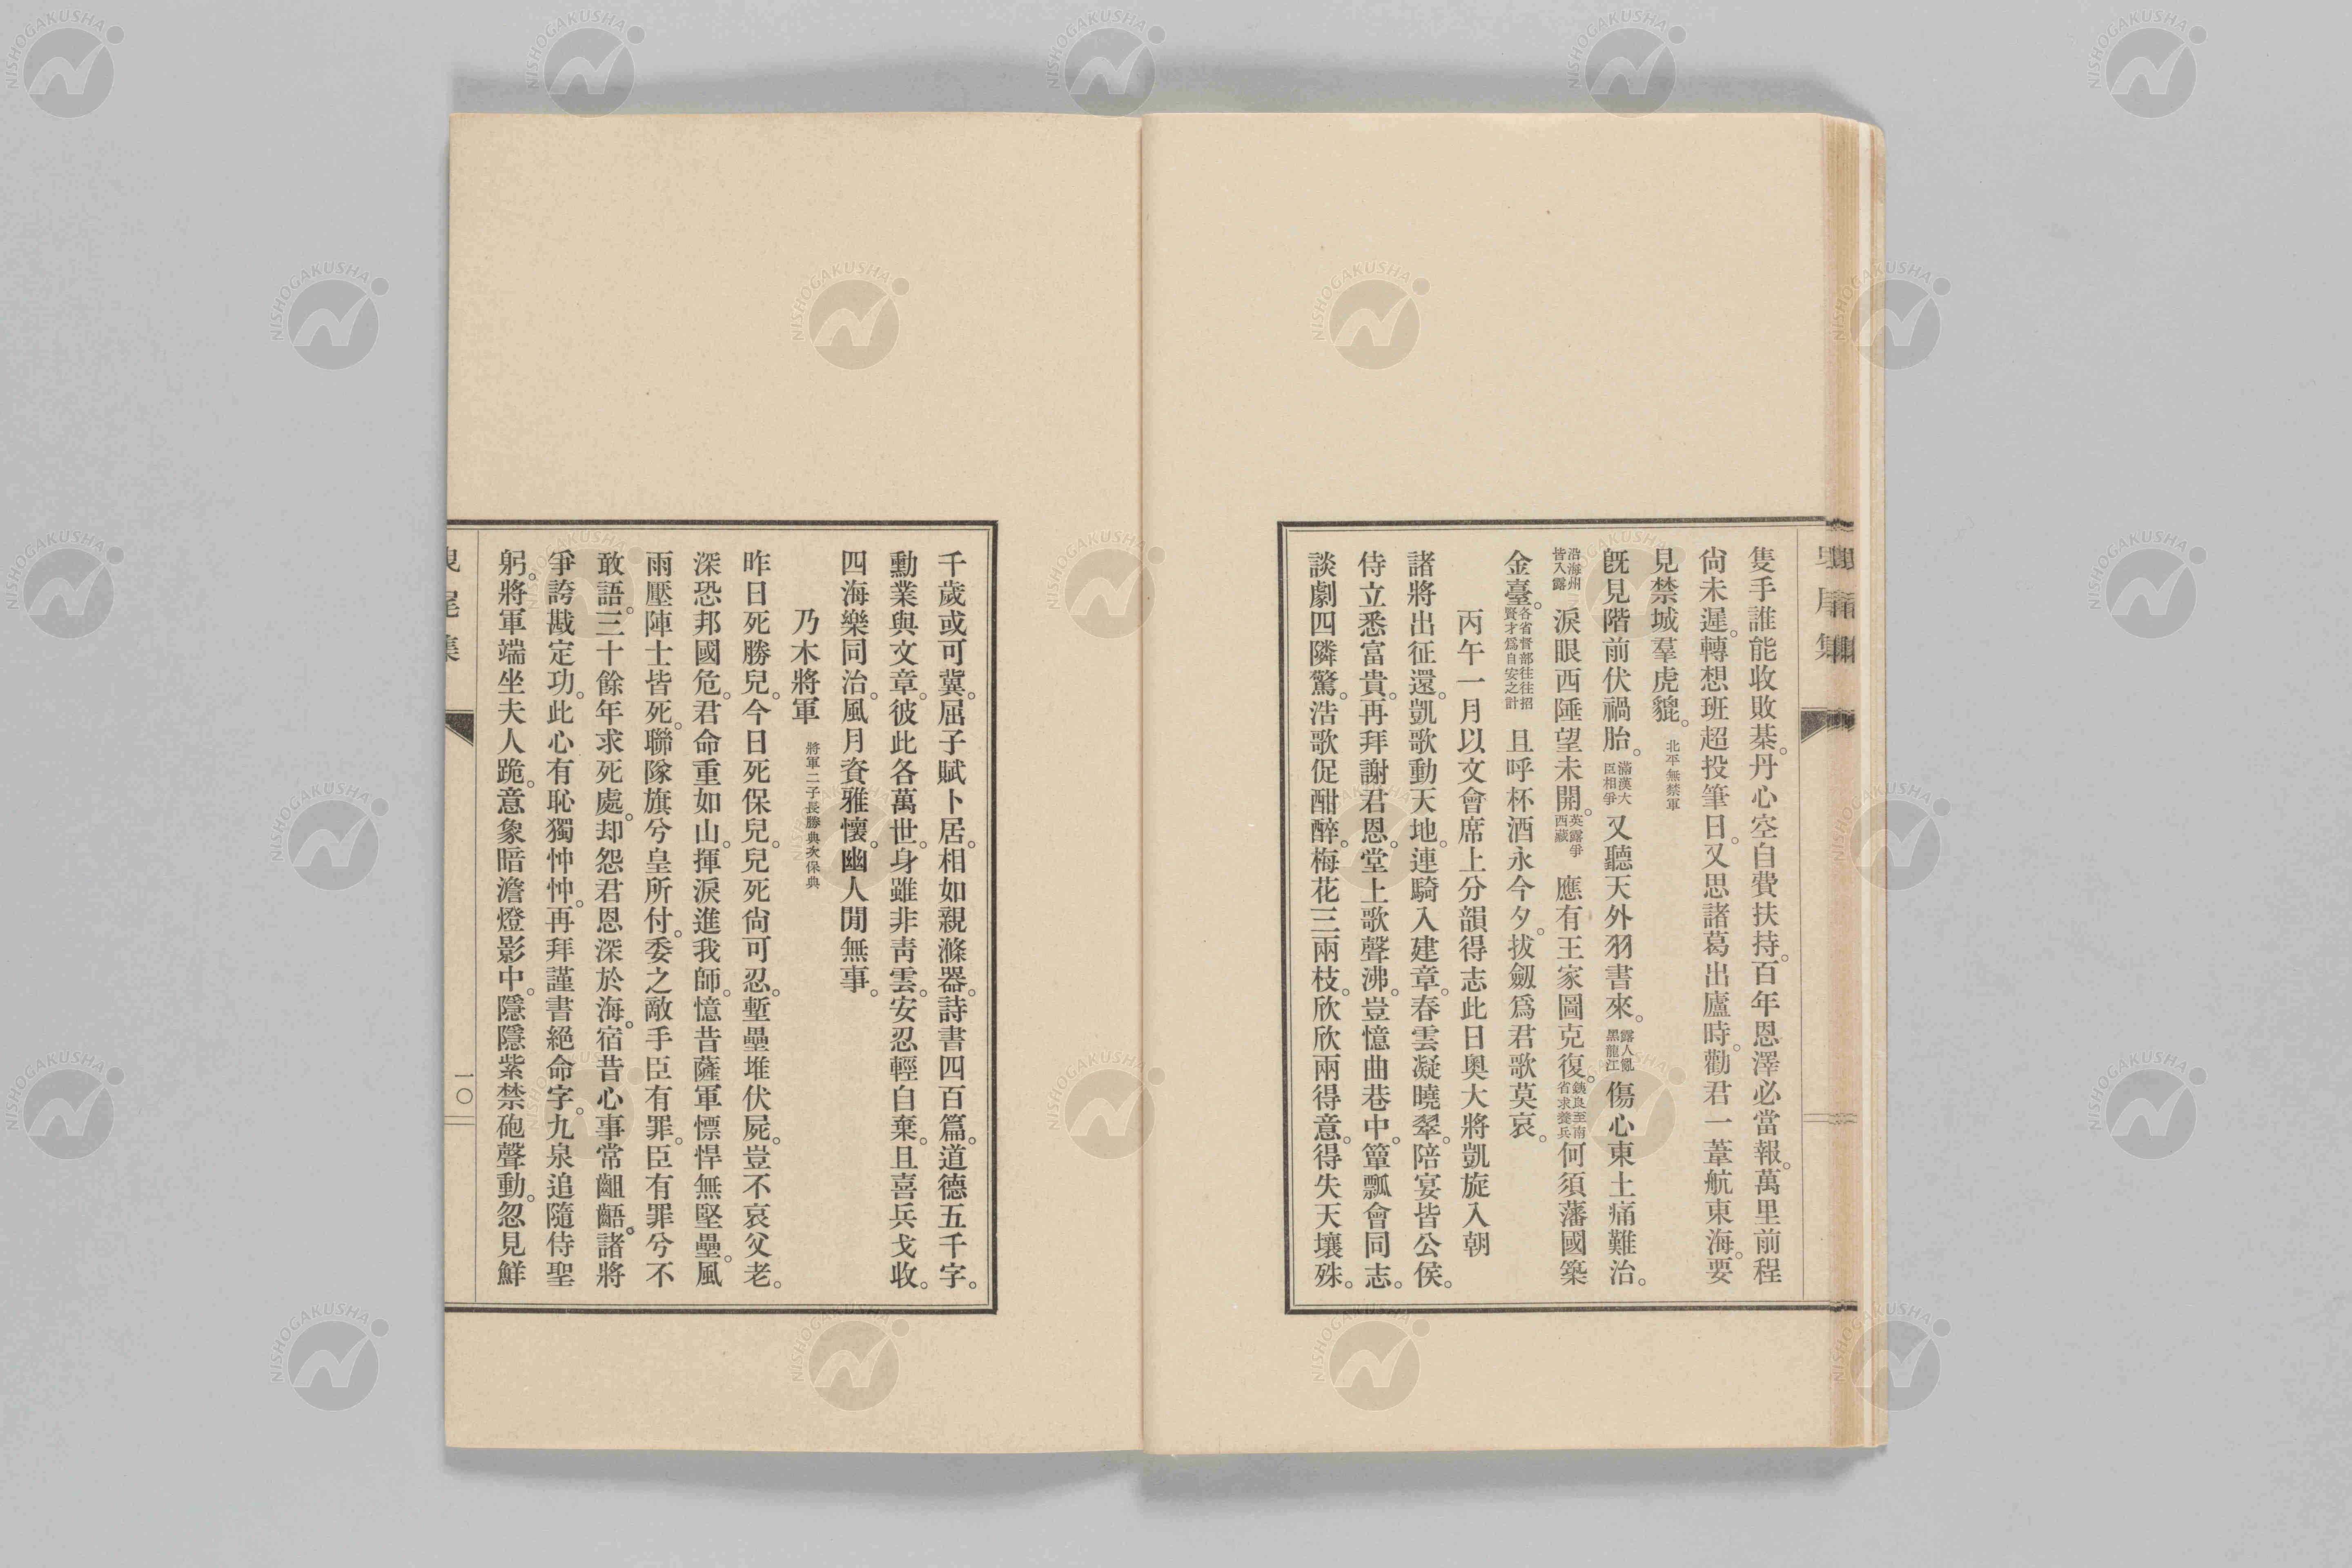 隻手誰能收敗棊。丹心空自費扶持。百年恩澤必當報。萬里前程
尙未遲。轉想班超投筆日。又思諸葛出廬時。勸君一葦航東海。要
見禁城羣虎貔。北平無禁軍
旣見階前伏禍胎。滿漢大臣相爭又聽天外羽書來。露人亂黑龍江傷心東土痛難治。
沿海州皆入露淚眼西陲望未開。英露爭西藏應有王家圖克復。銕良至南省求養兵何須藩國築
金臺。各省督部往往招賢才爲自安之計且呼杯酒永今夕。拔劔爲君歌莫哀。
丙午一月以文會席上分韻得志此日奧大將凱旋入朝
諸將出征還。凱歌動天地。連騎入建章。春雲凝曉翠。陪宴皆公侯。
侍立悉富貴。再拜謝君恩。堂上歌聲沸。豈憶曲巷中。簞瓢會同志。
談劇四隣驚。浩歌促酣醉。梅花三兩枝。欣欣兩得意。得失天壤殊。
千歲或可冀。屈子賦卜居。相如親滌器。詩書四百篇。道德五千字。
勳業與文章。彼此各萬世。身雖非靑雲。安忍輕自棄。且喜兵戈收。
四海樂同治。風月資雅懷。幽人閒無事。
乃木將軍 將軍二子長勝典次保典
昨日死勝兒。今日死保兒。兒死尙可忍。塹壘堆伏屍。豈不哀父老。
深恐邦國危。君命重如山。揮淚進我師。憶昔薩軍慓悍無堅壘。風
雨壓陣士皆死。聯隊旗兮皇所付。委之敵手臣有罪。臣有罪兮不
敢語。三十餘年求死處。却怨君恩深於海。宿昔心事常齟齬。諸將
爭誇戡定功。此心有恥獨忡忡。再拜謹書絕命字。九泉追隨侍聖
躬。將軍端坐夫人跪。意象暗澹燈影中。隱隱紫禁砲聲動。忽見鮮
一〇
NISHOGAKUSHA